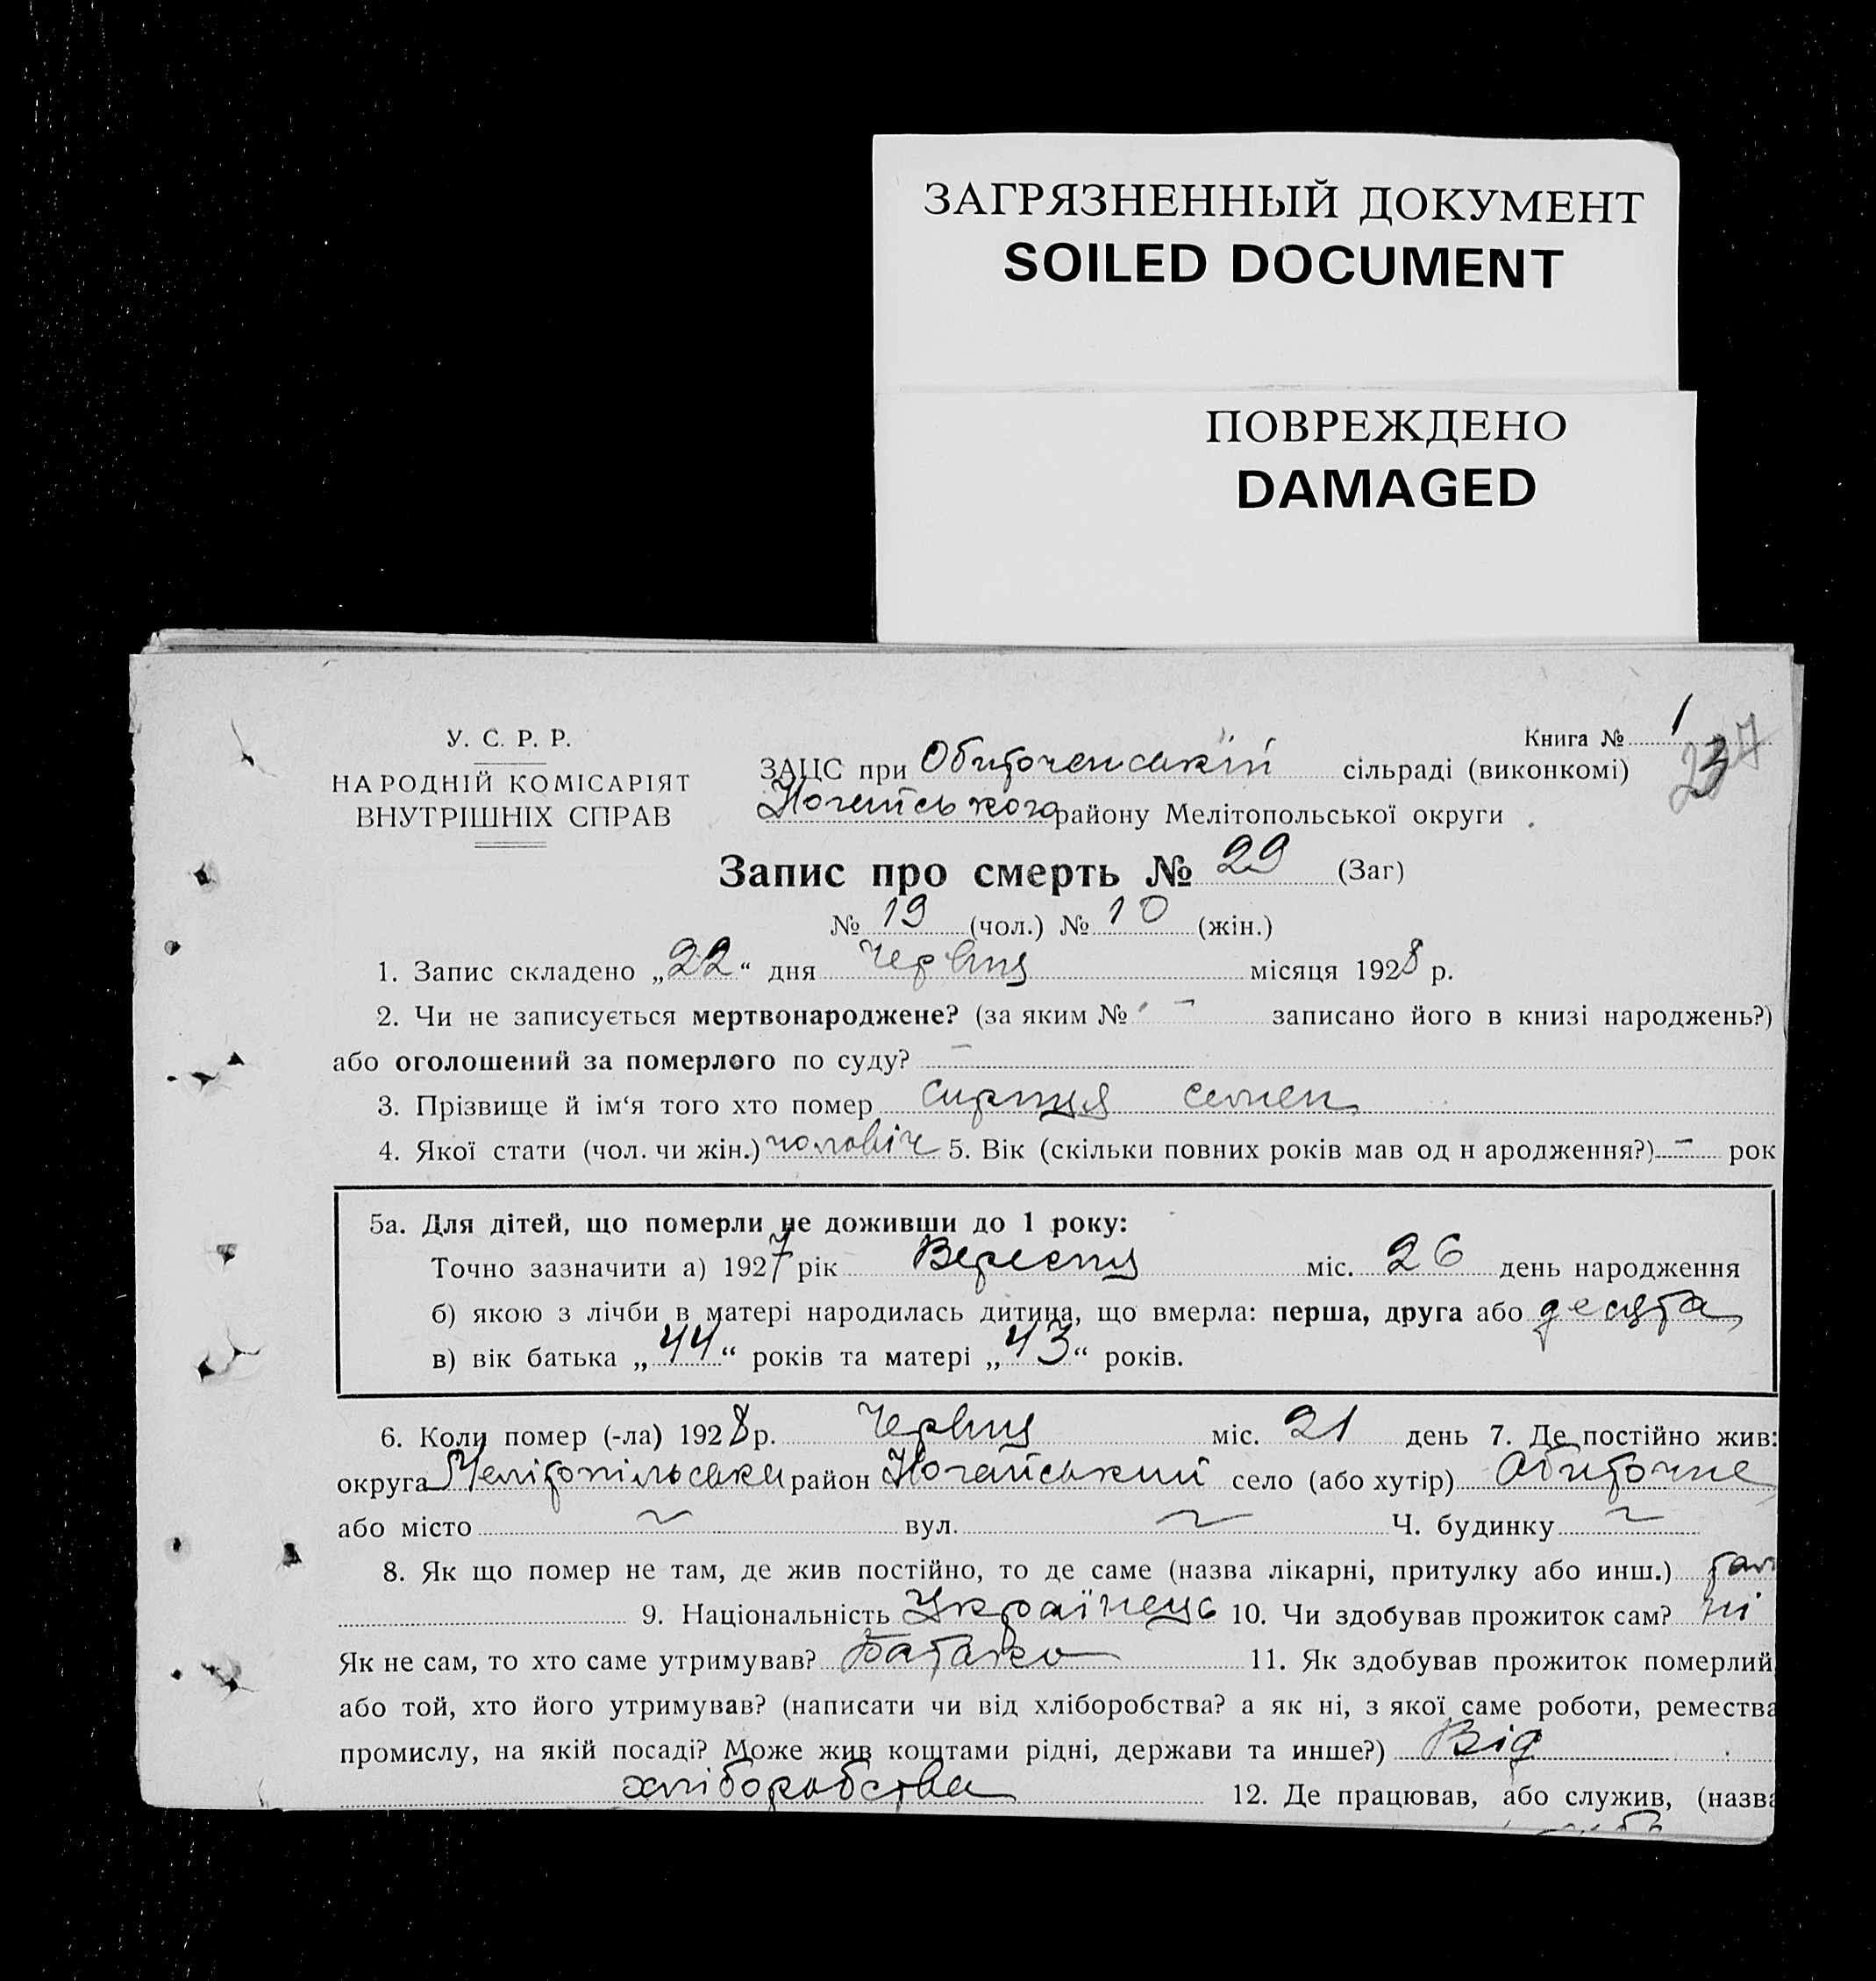 ЗАГРЯЗНЕННЫЙ ДОКУМЕНТ
SOILED DOCUMENT
ПОВРЕЖДЕНО
DAMAGED
У. С. Р. Р.
НАРОДНІЙ КОМІСАРІЯТ
ВНУТРІШНІХ СПРАВ
Книга № 1
ЗАЦС при Обиточенській сільраді (виконкомі)
Ногайського району Мелітопольської округи
Запис про смерть № 29 (Заг)
№ 19 (чол.) № 10 (жін.)
1. Запис складено „22“ дня Червня місяця 1928 р.
2. Чи не записується мертвонароджене? (за яким № - записано його в книзі народжень?)
або оголошений за померлого по суду? -
3. Прізвище й ім‘я того хто помер Семен
4. Якої стати (чол. чи жін.) чоловіч 5. Вік (скільки повних років мав од н ародження?) - рок
5а. Для дітей, що померли не доживши до 1 року:
Точно зазначити а) 1927 рік Вересня міс. 26 день народження
б) якою з лічби в матері народилась дитина, що вмерла: перша, друга або десята
в) вік батька „44“ років та матері „43“ років.
6. Коли помер (-ла) 1928 р. Червня міс. 21 день 7. Де постійно жив:
округа Мелітопільська район Ногайський село (або хутір) Обиточне
або місто ~ вул. ~ Ч. будинку ~
8. Як що помер не там, де жив постійно, то де саме (назва лікарні, притулку або инш.) там
9. Національність Українець 10. Чи здобував прожиток сам? ні
Як не сам, то хто саме утримував? Батько 11. Як здобував прожиток померлий
або той, хто його утримував? (написати чи від хліборобства? а як ні, з якої саме роботи, ремества
промислу, на якій посаді? Може жив коштами рідні, держави та инше?) Від
хліборобства 12. Де працював, або служив, (назва